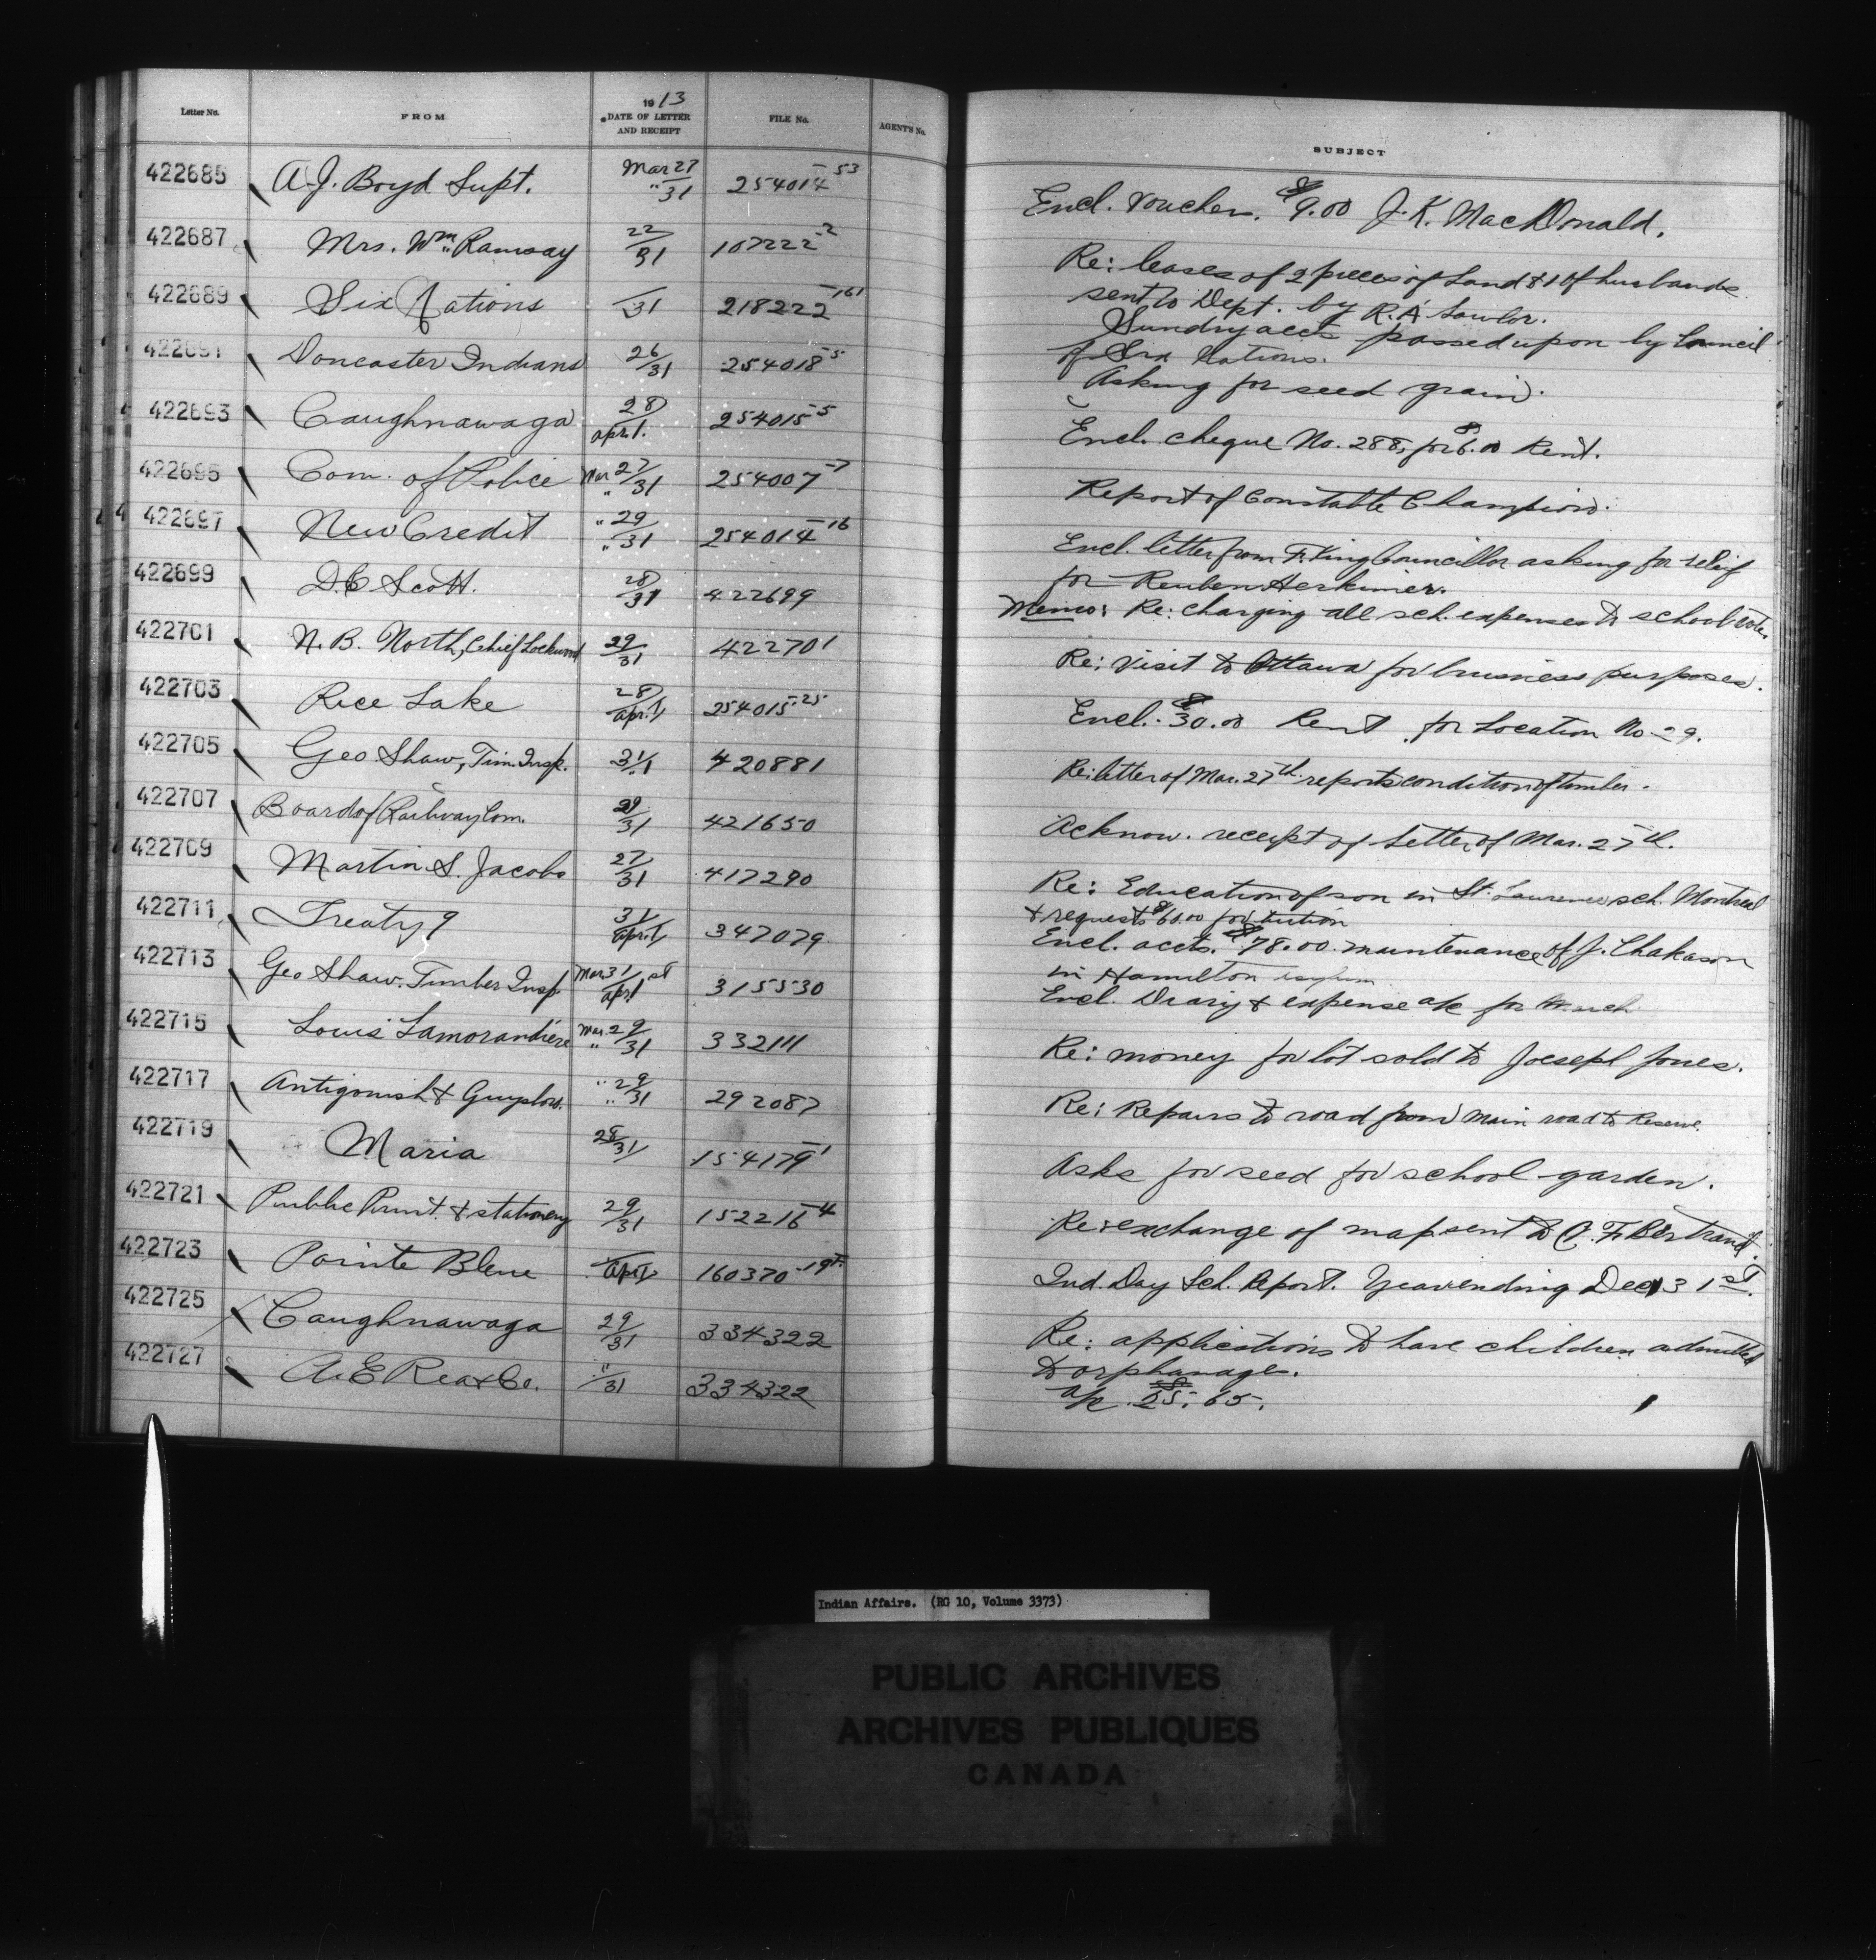 Letter No. FROM 1913 DATE OF LETTER AND RECEIPT FILE No. AGENT'S No. SUBJECT
422685 A.J. Boyd Supt. Mar 27 " 31 254014-53 Encl. Voucher. $9.00 J.K. MacDonald.
422687 Mrs. Wm. Ramsay 22/31 107222-2 Re: leases of 2 pieces of Land & 1 of husbands
sent to Dept. by R.A. Lawlor.
422689 Six Nations /31 218222-161 Sundry accts passed upon by Council
of Six Nations.
422691 Doncaster Indians 26/31 254018-5 Asking for seed grain.
422693 Caughnawaga 28/Apr.1. 254015-5 Encl. cheque No. 288, for $6.00 Rent.
422695 Com. of Police Mar 27/" 31 254007-7 Report of Constable Champion.
422697 New Credit " 29/" 31 254014-16 Encl. letter from F. King Councillor asking for relief
for Reuben Herkimer.
422699 D.C Scott. 28/31 422699 Memo: Re: charging all sch. expenses to school vote.
422701 N.B. North, Chief Lockwood 29/31 422701 Re: Visit to Ottawa for business purposes.
422703 Rice Lake 28/Apr.1 254015-25 Encl. $30.00 Rent for Location No. 29.
422705 Geo Shaw, Tim. Insp. 31/1 420881 Re: letter of Mar. 27th reports condition of timber.
422707 Board of Railway Com. 29/31 421650 Acknow. receipt of Letter of Mar. 27th.
422709 Martin S. Jacobs 27/31 417290 Re: Education of son in St. Laurence sch. Montreal
& requests $60.00 for tuition
422711 Treaty 9 31/Apr.1 347079 Encl. accts. $78.00 maintenance of J. Chakason
in Hamilton asylum
422713 Geo Shaw. Timber Insp Mar 31/Apr 1st 315530 Encl. Diary & expense a/c for March
422715 Louis Lamorandiere Mar. 29/" 31 332111 Re: money for lot sold to Joesepl Jones.
422717 Antigonish & Guysboro. " 29/" 31 292087 Re: Repairs to road from Main road to Reserve.
422719 Maria 28/31 154179-1 Asks for seed for school garden.
422721 Public Print. & stationery 29/31 152216-4 Re: exchange of map sent to C.F. Bertrand.
422723 Pointe Bleue Apr.1 160370-19 Ind. Day Sch. Report. Year ending Dec 31st.
422725 Caughnawaga 29/31 334322 Re: applications to have children admitted
to orphanages.
422727 A.E Rea & Co. "/31 334322 a/c $25.65.
Indian Affairs. (RG 10, Volume 3373)
PUBLIC ARCHIVES
ARCHIVES PUBLIQUES
CANADA